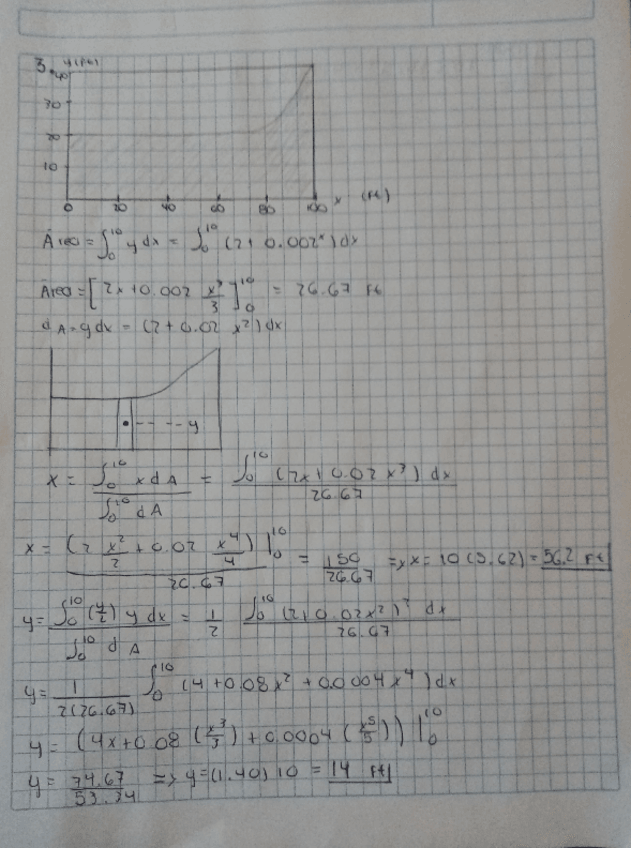 3. y(ft)
40
30
20
10
0 20 40 60 80 100 x (ft)
Área = ∫₀¹⁰ y dx = ∫₀¹⁰ (2+0.002ˣ) dx
Área = [2x+0.002 x³/3]₀¹⁰ = 26.67 ft
dA = y dx = (2+0.02 x²) dx
y
x = ∫₀¹⁰ x dA / ∫₀¹⁰ dA = ∫₀¹⁰ (2x+0.02x³) dx / 26.67
x = (2 x²/2 + 0.02 x⁴/4) |₀¹⁰ / 26.67 = 150/26.67 => x = 10(5.62) = 56.2 ft
y = ∫₀¹⁰ (y/2) y dx / ∫₀¹⁰ dA = 1/2 ∫₀¹⁰ (2+0.02x²)² dx / 26.67
y = 1/2(26.67) ∫₀¹⁰ (4+0.08x² + 0.0004x⁴) dx
y = (4x+0.08 (x³/3) + 0.0004 (x⁵/5)) |₀¹⁰
y = 74.67/53.34 => y = (1.40) 10 = 14 ft